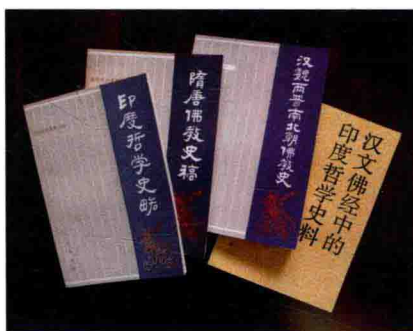 印度哲学史略
隋唐佛教史稿
汉魏两晋南北朝佛教史
汉文佛经中的
印度哲学史料